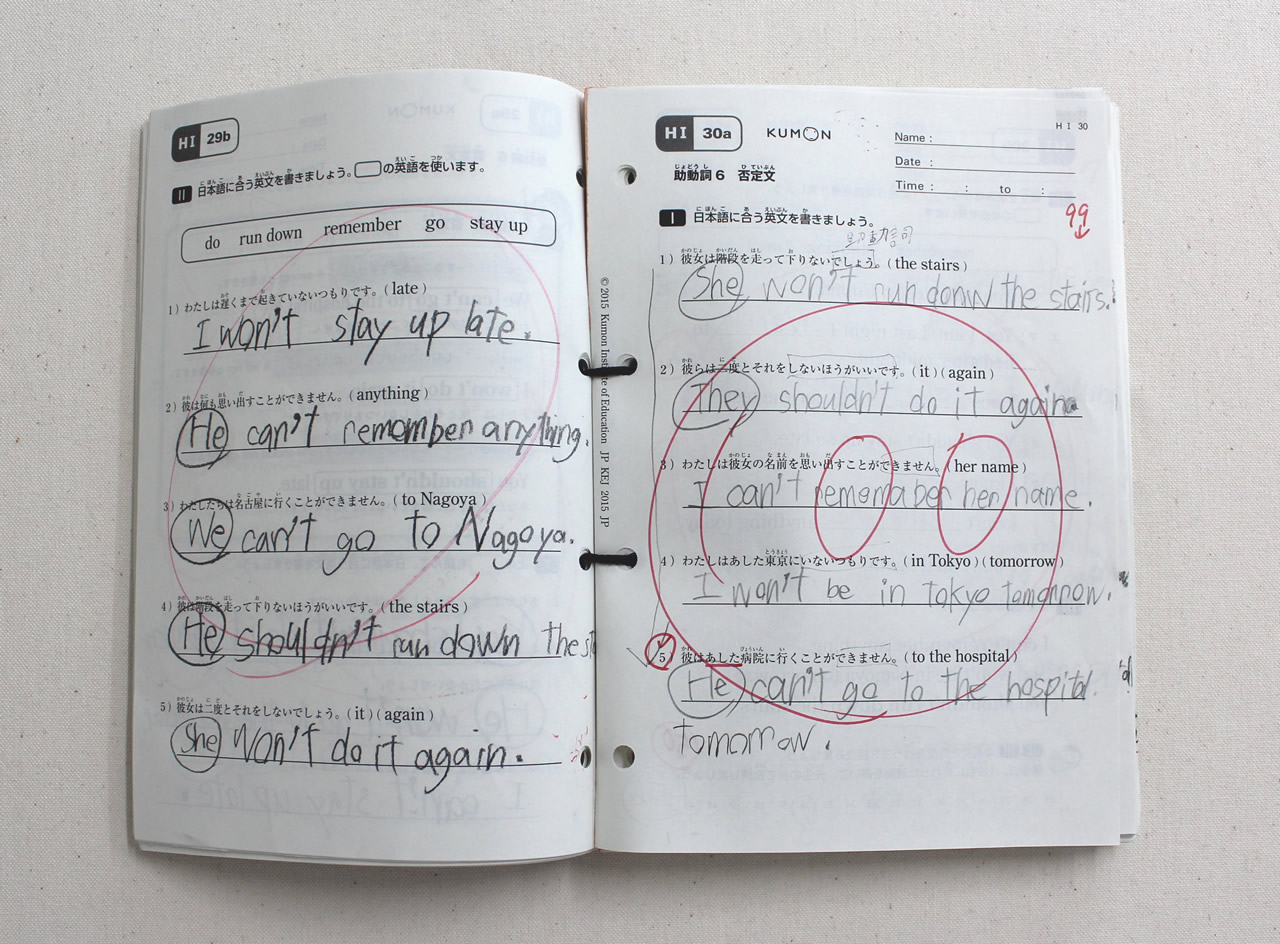 HI 29b
II 日本語に合う英文を書きましょう。 の英語を使います。
do run down remember go stay up
1) わたしは遅くまで起きていないつもりです。(late)
I won't stay up late.
2) 彼は何も思い出すことができません。(anything)
He can't remember anything.
3) わたしたちは名古屋に行くことができません。(to Nagoya)
We can't go to Nagoya.
4) 彼は階段を走って下りないほうがいいです。(the stairs)
He shouldn't run down the
5) 彼女は二度とそれをしないでしょう。(it)(again)
She won't do it again.
© 2015 Kumon Institute of Education JP KEJ 2015 JP
HI 30a KUMON
HI 30
Name :
Date :
Time : : to :
助動詞6 否定文
99
I 日本語に合う英文を書きましょう。
助動詞
1) 彼女は階段を走って下りないでしょう。(the stairs)
She won't run donw the stairs.
2) 彼らは二度とそれをしないほうがいいです。(it)(again)
They shouldn't do it again.
3) わたしは彼女の名前を思い出すことができません。(her name)
I can't rememaber her name.
4) わたしはあした東京にいないつもりです。(in Tokyo)(tomorrow)
I won't be in Tokyo tomorrow.
5) 彼はあした病院に行くことができません。(to the hospital)
He can't go to the hospital
tomorrow.